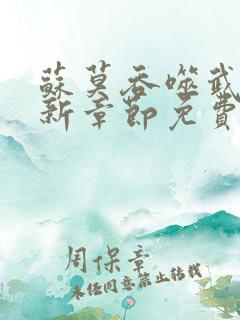 蘇莫吞噬武
新章節免費
周保章
未经同意禁止转载